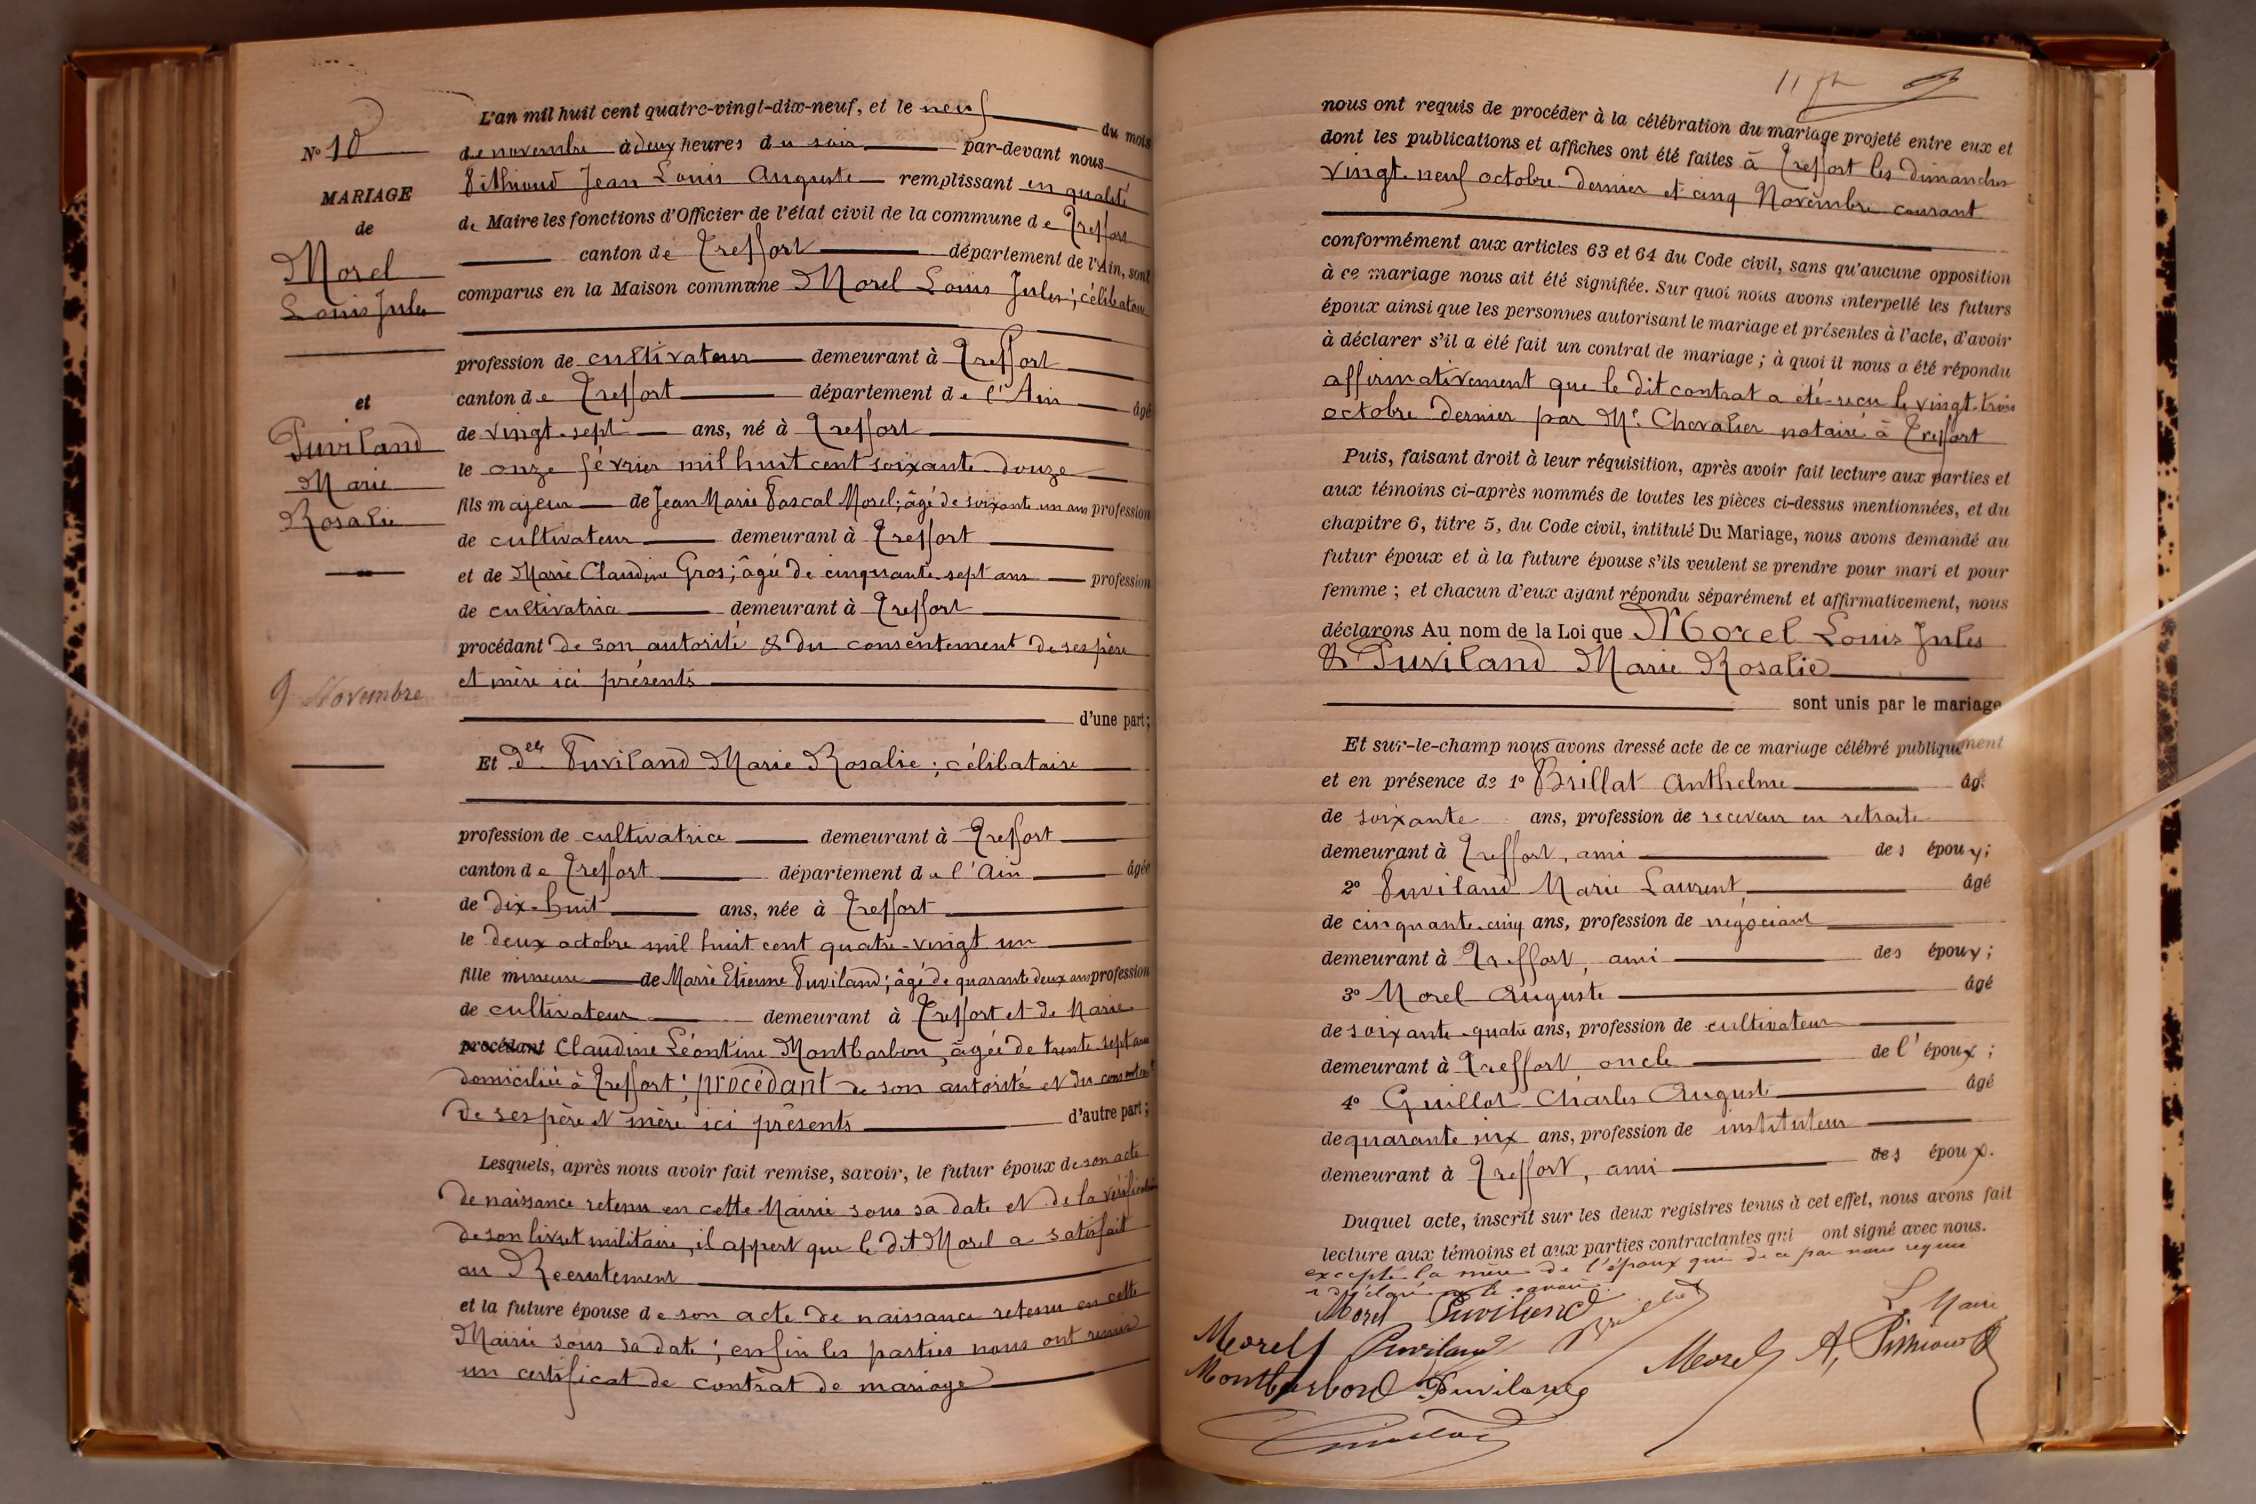 N° 10
MARIAGE
de
Morel
Louis Jules
et
Puviland
Marie
Rosalie
9 Novembre
L'an mil huit cent quatre-vingt-dix-neuf, et le neuf du mois
de novembre à deux heures du soir par-devant nous
Jean Louis Auguste remplissant en qualité
de Maire les fonctions d'Officier de l'état civil de la commune de Treffort
canton de Treffort département de l'Ain, sont
comparus en la Maison commune Morel Louis Jules; célibataire
profession de cultivateur demeurant à Treffort
canton de Treffort département de l'Ain âgé
de vingt-sept ans, né à Treffort
le onze février mil huit cent soixante-douze
fils majeur de Jean Marie Pascal Morel; âgé de soixante un ans profession
de cultivateur demeurant à Treffort
et de Marie Claudine Gros; âgée de cinquante-sept ans profession
de cultivatrice demeurant à Treffort
procédant de son autorité & du consentement de ses père
et mère ici présents
d'une part;
Et Delle Puviland Marie Rosalie; célibataire
profession de cultivatrice demeurant à Treffort
canton de Treffort département de l'Ain âgée
de dix-huit ans, née à Treffort
le deux octobre mil huit cent quatre-vingt un
fille mineure de Marie Etienne Puviland; âgé de quarante deux ans profession
de cultivateur demeurant à Treffort et de Marie
procédant Claudine Léontine Montbarbon, âgée de trente-sept ans
domiciliée à Treffort; procédant de son autorité et du consentemt
de ses père et mère ici présents d'autre part;
Lesquels, après nous avoir fait remise, savoir, le futur époux de son acte
de naissance retenu en cette Mairie sous sa date et de la vérification
de son livret militaire, il appert que le dit Morel a satisfait
au Recrutement
et la future épouse de son acte de naissance retenu en cette
Mairie sous sa date; enfin les parties nous ont remis
un certificat de contrat de mariage
nous ont requis de procéder à la célébration du mariage projeté entre eux et
dont les publications et affiches ont été faites à Treffort les dimanches
vingt-neuf octobre dernier et cinq Novembre courant
conformément aux articles 63 et 64 du Code civil, sans qu'aucune opposition
à ce mariage nous ait été signifiée. Sur quoi nous avons interpellé les futurs
époux ainsi que les personnes autorisant le mariage et présentes à l'acte, d'avoir
à déclarer s'il a été fait un contrat de mariage; à quoi il nous a été répondu
affirmativement que le dit contrat a été reçu le vingt-trois
octobre dernier par Me Chevalier notaire à Treffort
Puis, faisant droit à leur réquisition, après avoir fait lecture aux parties et
aux témoins ci-après nommés de toutes les pièces ci-dessus mentionnées, et du
chapitre 6, titre 5, du Code civil, intitulé Du Mariage, nous avons demandé au
futur époux et à la future épouse s'ils veulent se prendre pour mari et pour
femme; et chacun d'eux ayant répondu séparément et affirmativement, nous
déclarons Au nom de la Loi que Morel Louis Jules
& Puviland Marie Rosalie
sont unis par le mariage
Et sur-le-champ nous avons dressé acte de ce mariage célébré publiquement
et en présence de 1° Brillat Anthelme âgé
de soixante ans, profession de receveur en retraite
demeurant à Treffort, ami des époux;
2° Puviland Marie Laurent, âgé
de cinquante-cinq ans, profession de négociant
demeurant à Treffort, ami des époux;
3° Morel Auguste âgé
de soixante-quatre ans, profession de cultivateur
demeurant à Treffort oncle de l'époux;
4° Guillot Charles August âgé
de quarante six ans, profession de instituteur
demeurant à Treffort, ami des époux.
Duquel acte, inscrit sur les deux registres tenus à cet effet, nous avons fait
lecture aux témoins et aux parties contractantes qui ont signé avec nous.
excepté la mère de l'époux qui de ce par nous requise
a déclaré ne le savoir.
Morel Puviland
Le Maire
Morel Puviland Brillat Morel A.
Montbarbon Puviland